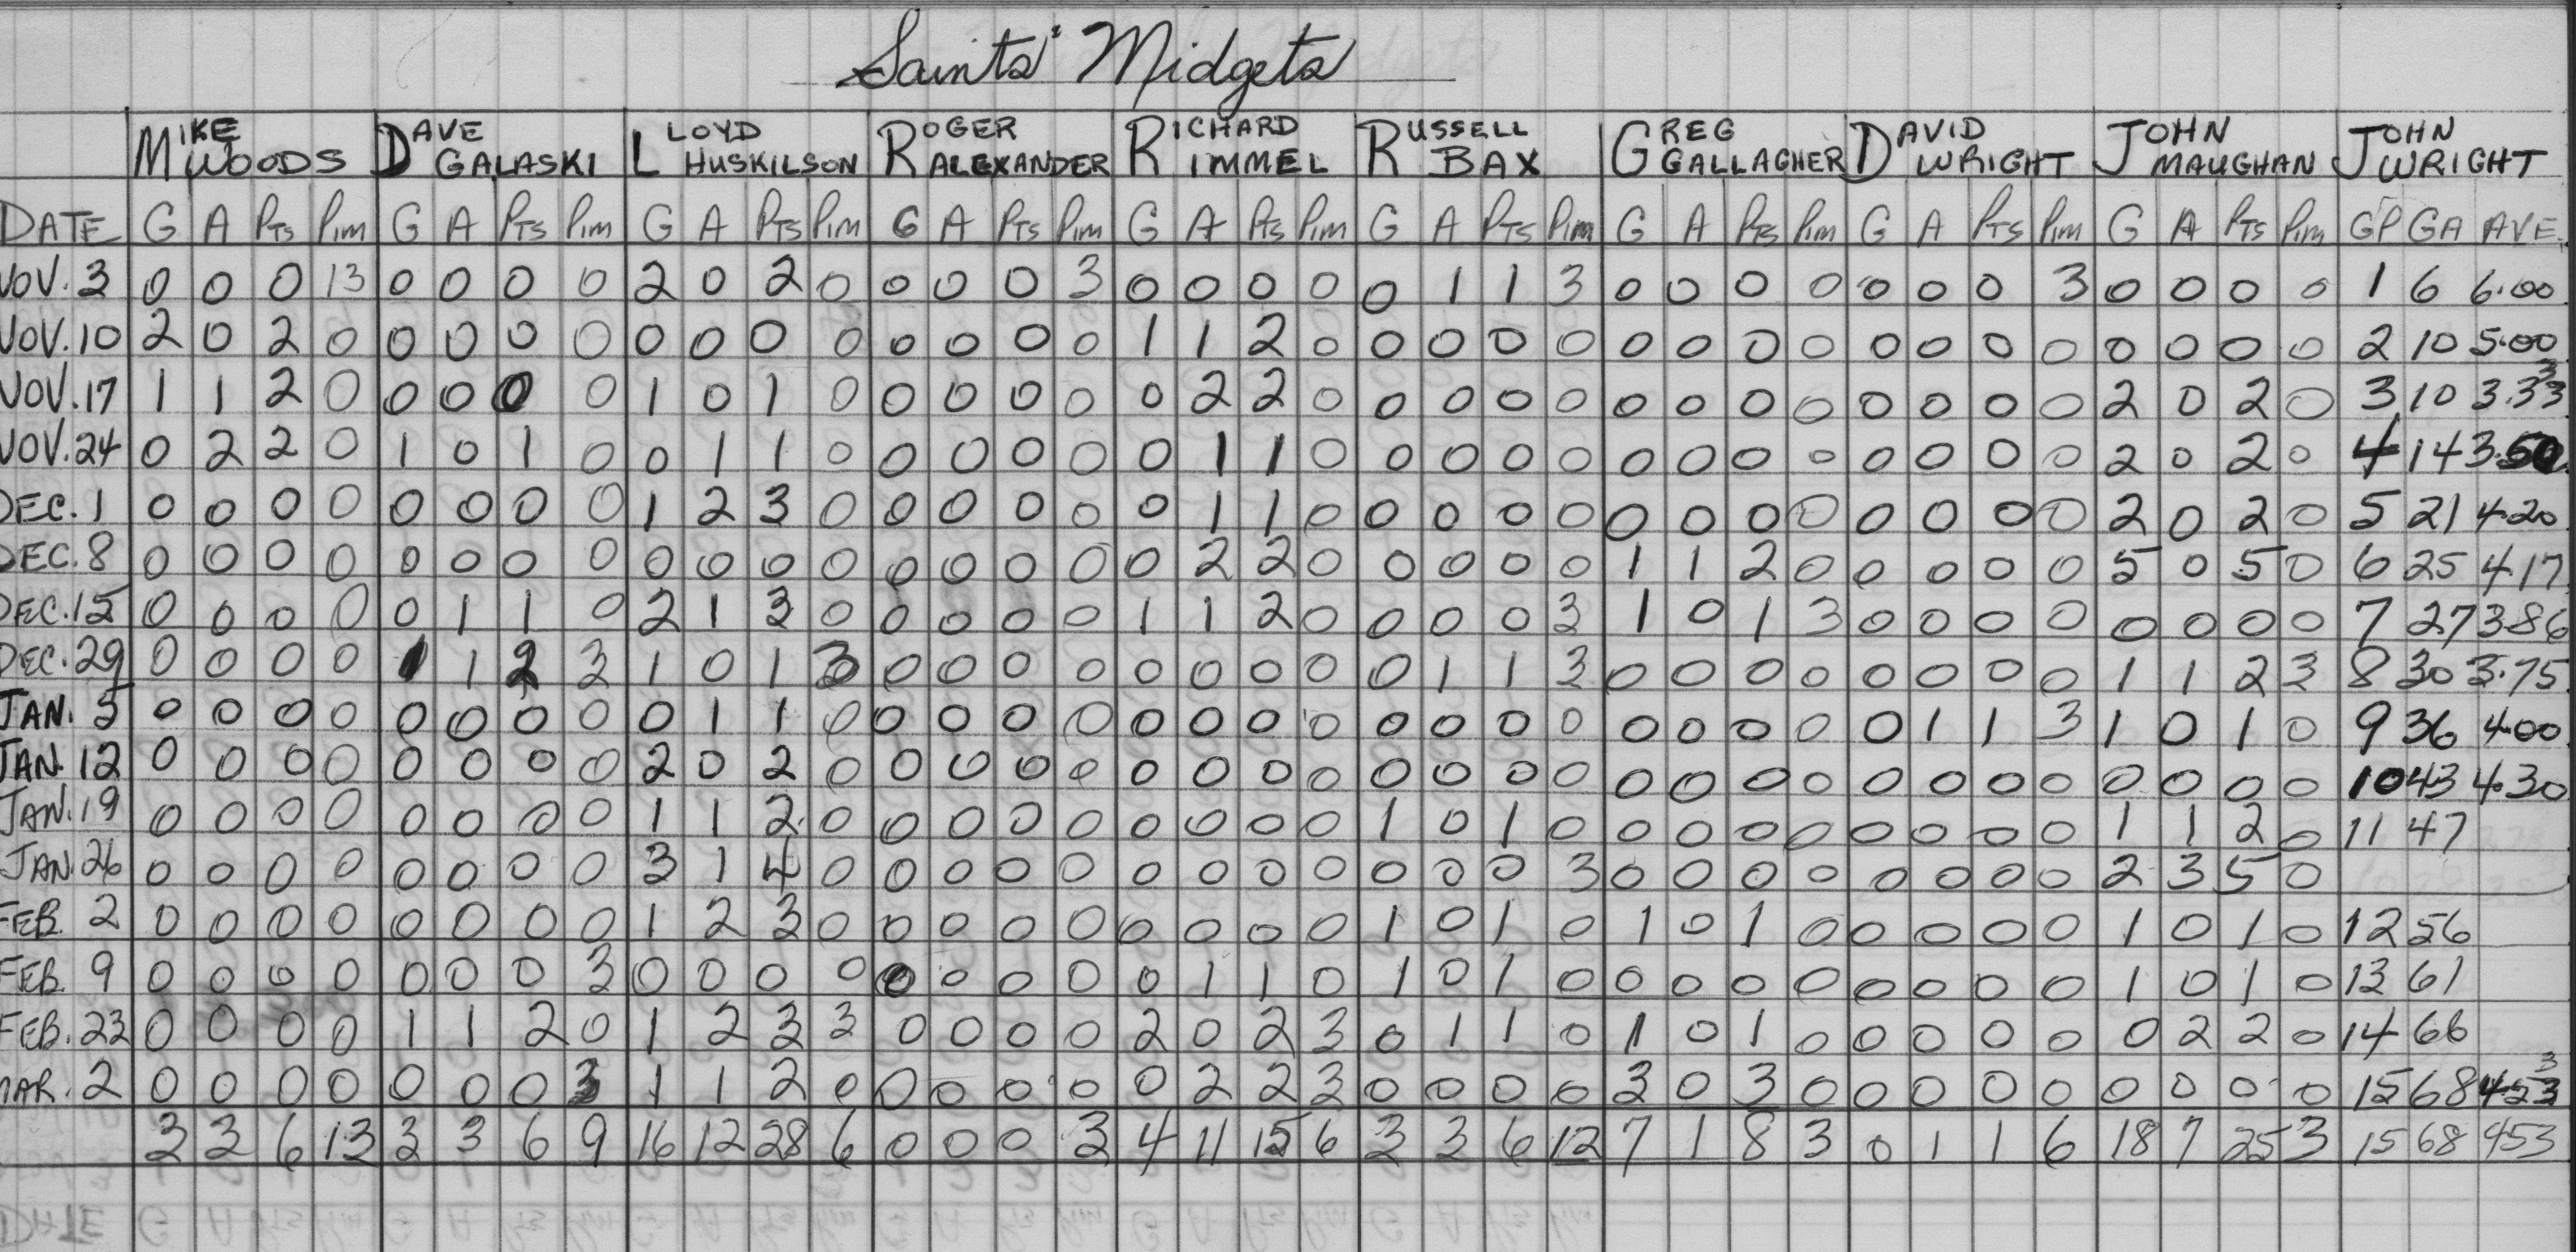 Saints' Midgets
MIKE WOODS DAVE GALASKI LLOYD HUSKILSON ROGER ALEXANDER RICHARD RIMMEL RUSSELL BAX GREG GALLAGHER DAVID WRIGHT JOHN MAUGHAN JOHN WRIGHT
DATE G A PTS PIM G A PTS PIM G A PTS PIM G A PTS PIM G A PTS PIM G A PTS PIM G A PTS PIM G A PTS PIM G A PTS PIM GP GA AVE.
NOV. 3 0 0 0 13 0 0 0 0 2 0 2 0 0 0 0 3 0 0 0 0 0 1 1 3 0 0 0 0 0 0 0 3 0 0 0 0 1 6 6.00
NOV. 10 2 0 2 0 0 0 0 0 0 0 0 0 0 0 0 0 1 1 2 0 0 0 0 0 0 0 0 0 0 0 0 0 0 0 0 0 2 10 5.00
NOV. 17 1 1 2 0 0 0 0 0 1 0 1 0 0 0 0 0 0 2 2 0 0 0 0 0 0 0 0 0 0 0 0 0 2 0 2 0 3 10 3.333
NOV. 24 0 2 2 0 1 0 1 0 0 1 1 0 0 0 0 0 0 1 1 0 0 0 0 0 0 0 0 0 0 0 0 0 2 0 2 0 4 14 3.50
DEC. 1 0 0 0 0 0 0 0 0 1 2 3 0 0 0 0 0 0 1 1 0 0 0 0 0 0 0 0 0 0 0 0 0 2 0 2 0 5 21 4.20
DEC. 8 0 0 0 0 0 0 0 0 0 0 0 0 0 0 0 0 0 2 2 0 0 0 0 0 1 1 2 0 0 0 0 0 5 0 5 0 6 25 4.17
DEC. 15 0 0 0 0 0 1 1 0 2 1 3 0 0 0 0 0 1 1 2 0 0 0 0 3 1 0 1 3 0 0 0 0 0 0 0 0 7 27 3.86
DEC. 29 0 0 0 0 1 1 2 3 1 0 1 3 0 0 0 0 0 0 0 0 0 1 1 3 0 0 0 0 0 0 0 0 1 1 2 3 8 30 3.75
JAN. 5 0 0 0 0 0 0 0 0 0 1 1 0 0 0 0 0 0 0 0 0 0 0 0 0 0 0 0 0 0 1 1 3 1 0 1 0 9 36 4.00
JAN. 12 0 0 0 0 0 0 0 0 2 0 2 0 0 0 0 0 0 0 0 0 0 0 0 0 0 0 0 0 0 0 0 0 0 0 0 0 10 43 4.30
JAN. 19 0 0 0 0 0 0 0 0 1 1 2 0 0 0 0 0 0 0 0 0 1 0 1 0 0 0 0 0 0 0 0 0 1 1 2 0 11 47
JAN. 26 0 0 0 0 0 0 0 0 3 1 4 0 0 0 0 0 0 0 0 0 0 0 0 3 0 0 0 0 0 0 0 0 2 3 5 0
FEB. 2 0 0 0 0 0 0 0 0 1 2 3 0 0 0 0 0 0 0 0 0 1 0 1 0 1 0 1 0 0 0 0 0 1 0 1 0 12 56
FEB. 9 0 0 0 0 0 0 0 3 0 0 0 0 0 0 0 0 0 1 1 0 1 0 1 0 0 0 0 0 0 0 0 0 1 0 1 0 13 61
FEB. 23 0 0 0 0 1 1 2 0 1 2 3 3 0 0 0 0 2 0 2 3 0 1 1 0 1 0 1 0 0 0 0 0 0 2 2 0 14 66
MAR. 2 0 0 0 0 0 0 0 3 1 1 2 0 0 0 0 0 0 2 2 3 0 0 0 0 3 0 3 0 0 0 0 0 0 0 0 0 15 68
3 3 6 13 3 3 6 9 16 12 28 6 0 0 0 3 4 11 15 6 3 3 6 12 7 1 8 3 0 1 1 6 18 7 25 3 15 68 453